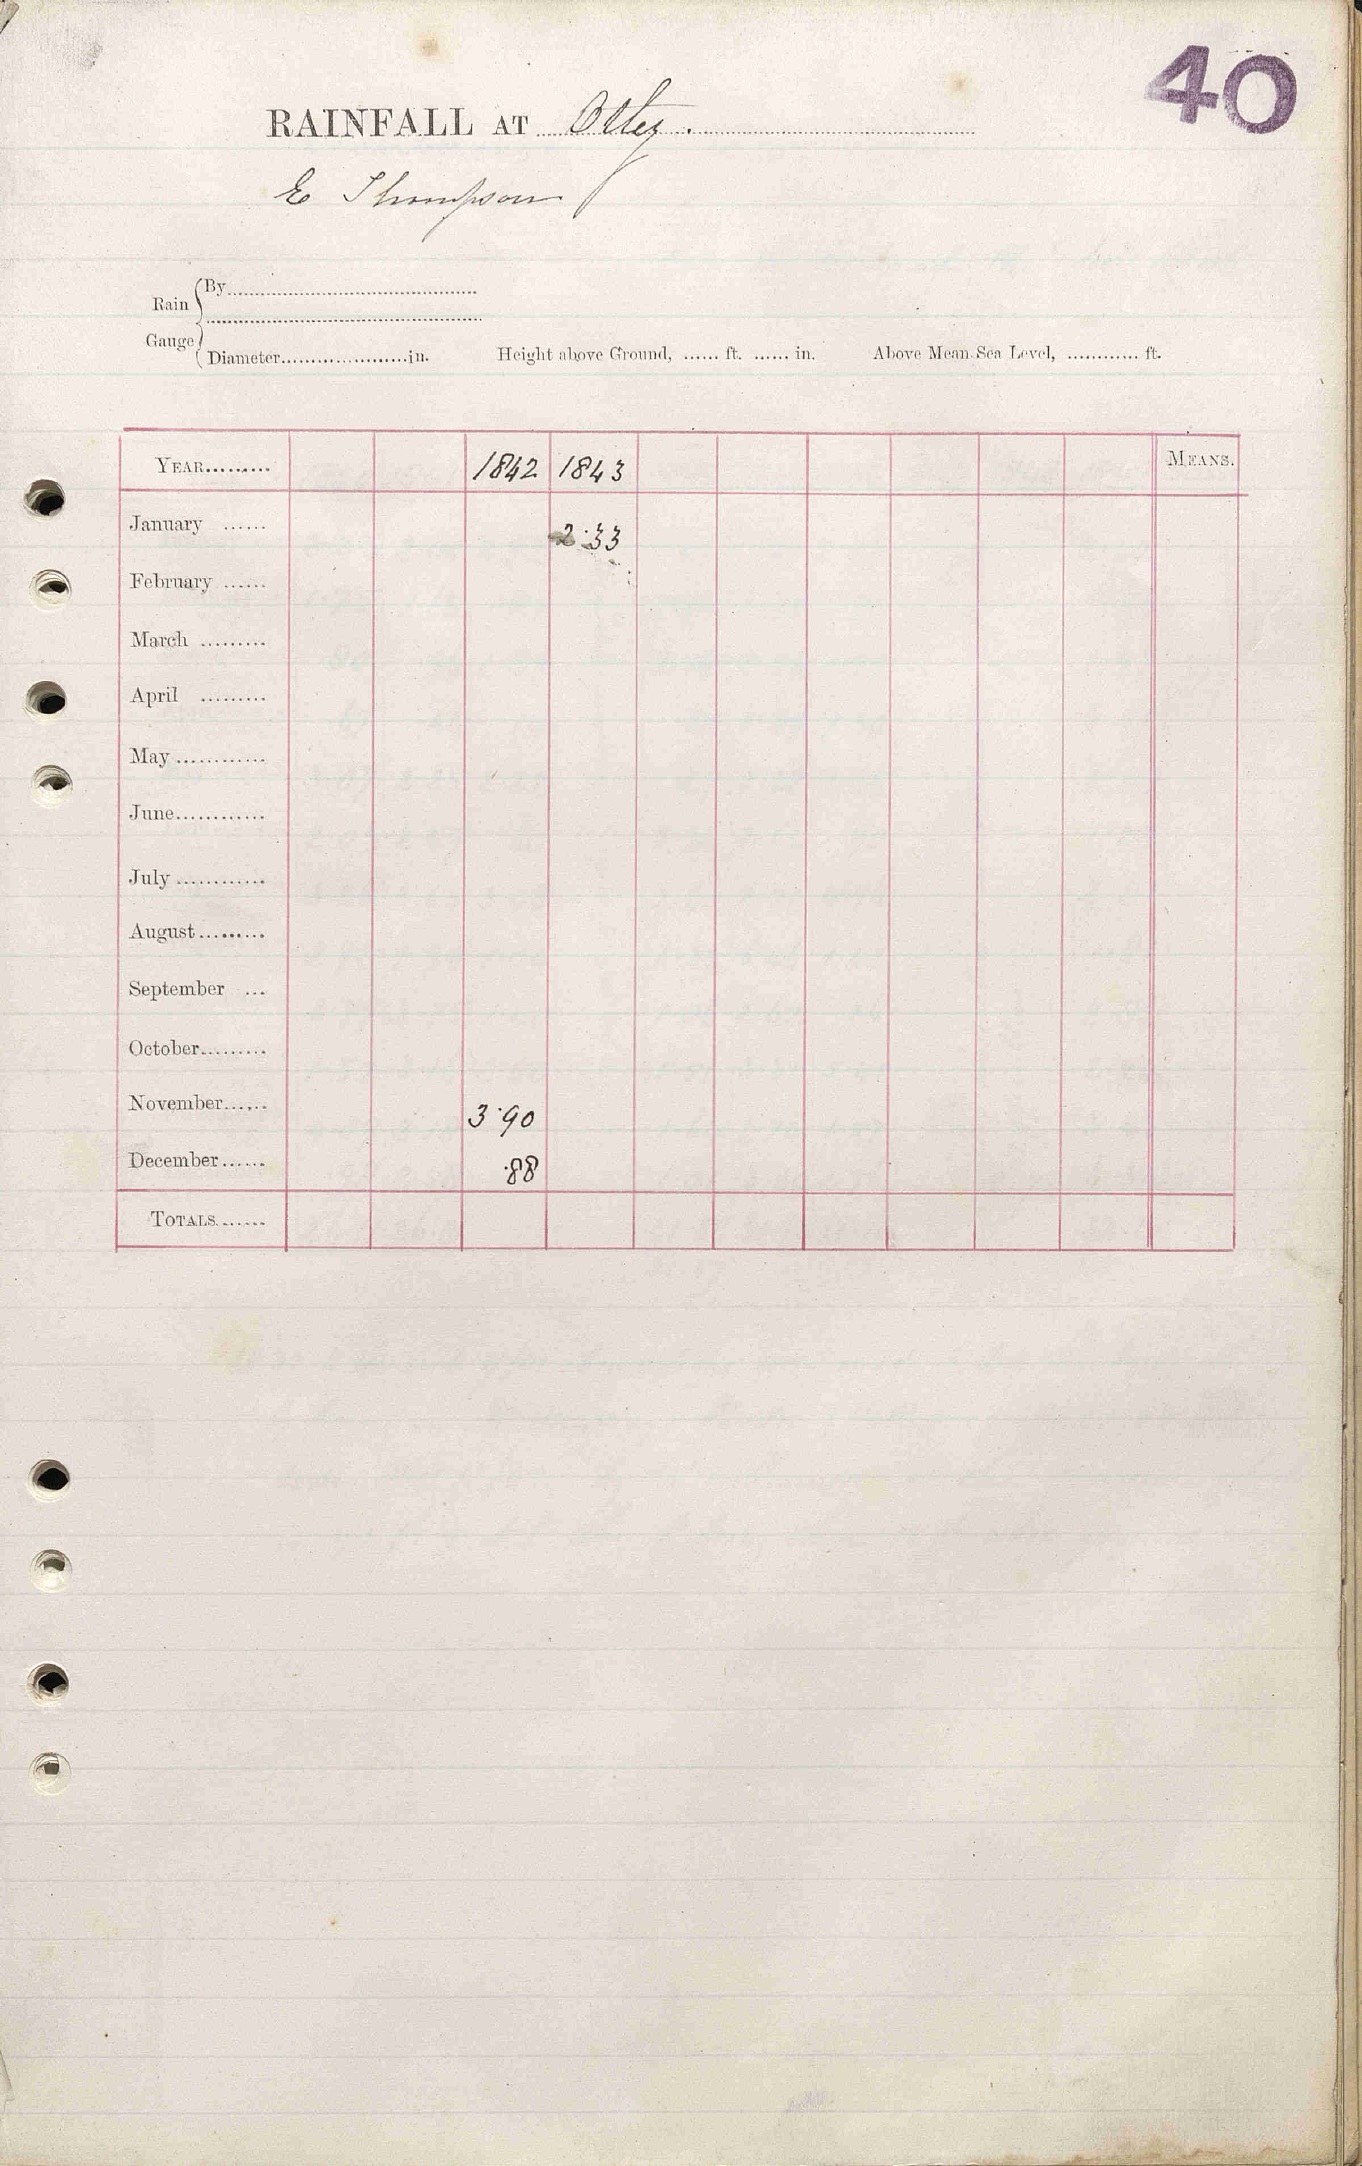 40
RAINFALL AT Otley.
E Thompson
Rain Gauge
By
Diameter in. Height above Ground, ...... ft. ...... in. Above Mean Sea Level, ............ ft.
YEAR......... 1842 1843 MEANS.
January ...... 2.33
February ......
March .........
April .........
May ............
June............
July ............
August.........
September ...
October.........
November...... 3.90
December...... .88
TOTALS.......